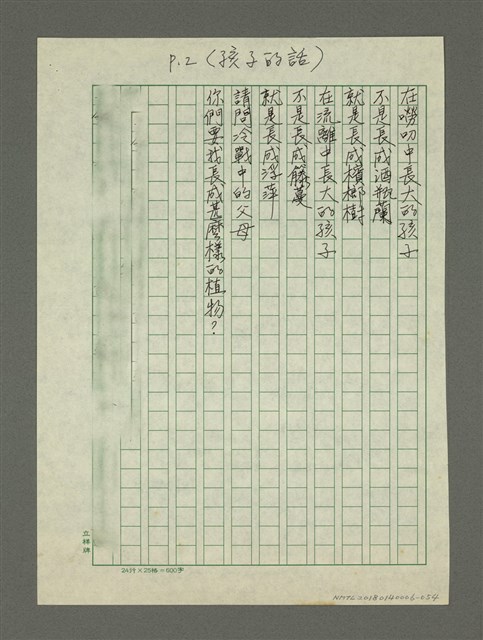 P.2（孩子的話）
在嘮叨中長大的孩子
不是長成酒瓶蘭
就是長成檳榔樹
在流離中長大的孩子
不是長成藤蔓
就是長成浮萍
請問冷戰中的父母
你們要我長成甚麼樣的植物？
立祥牌
24行×25格=600字
NMTL20180140006-034